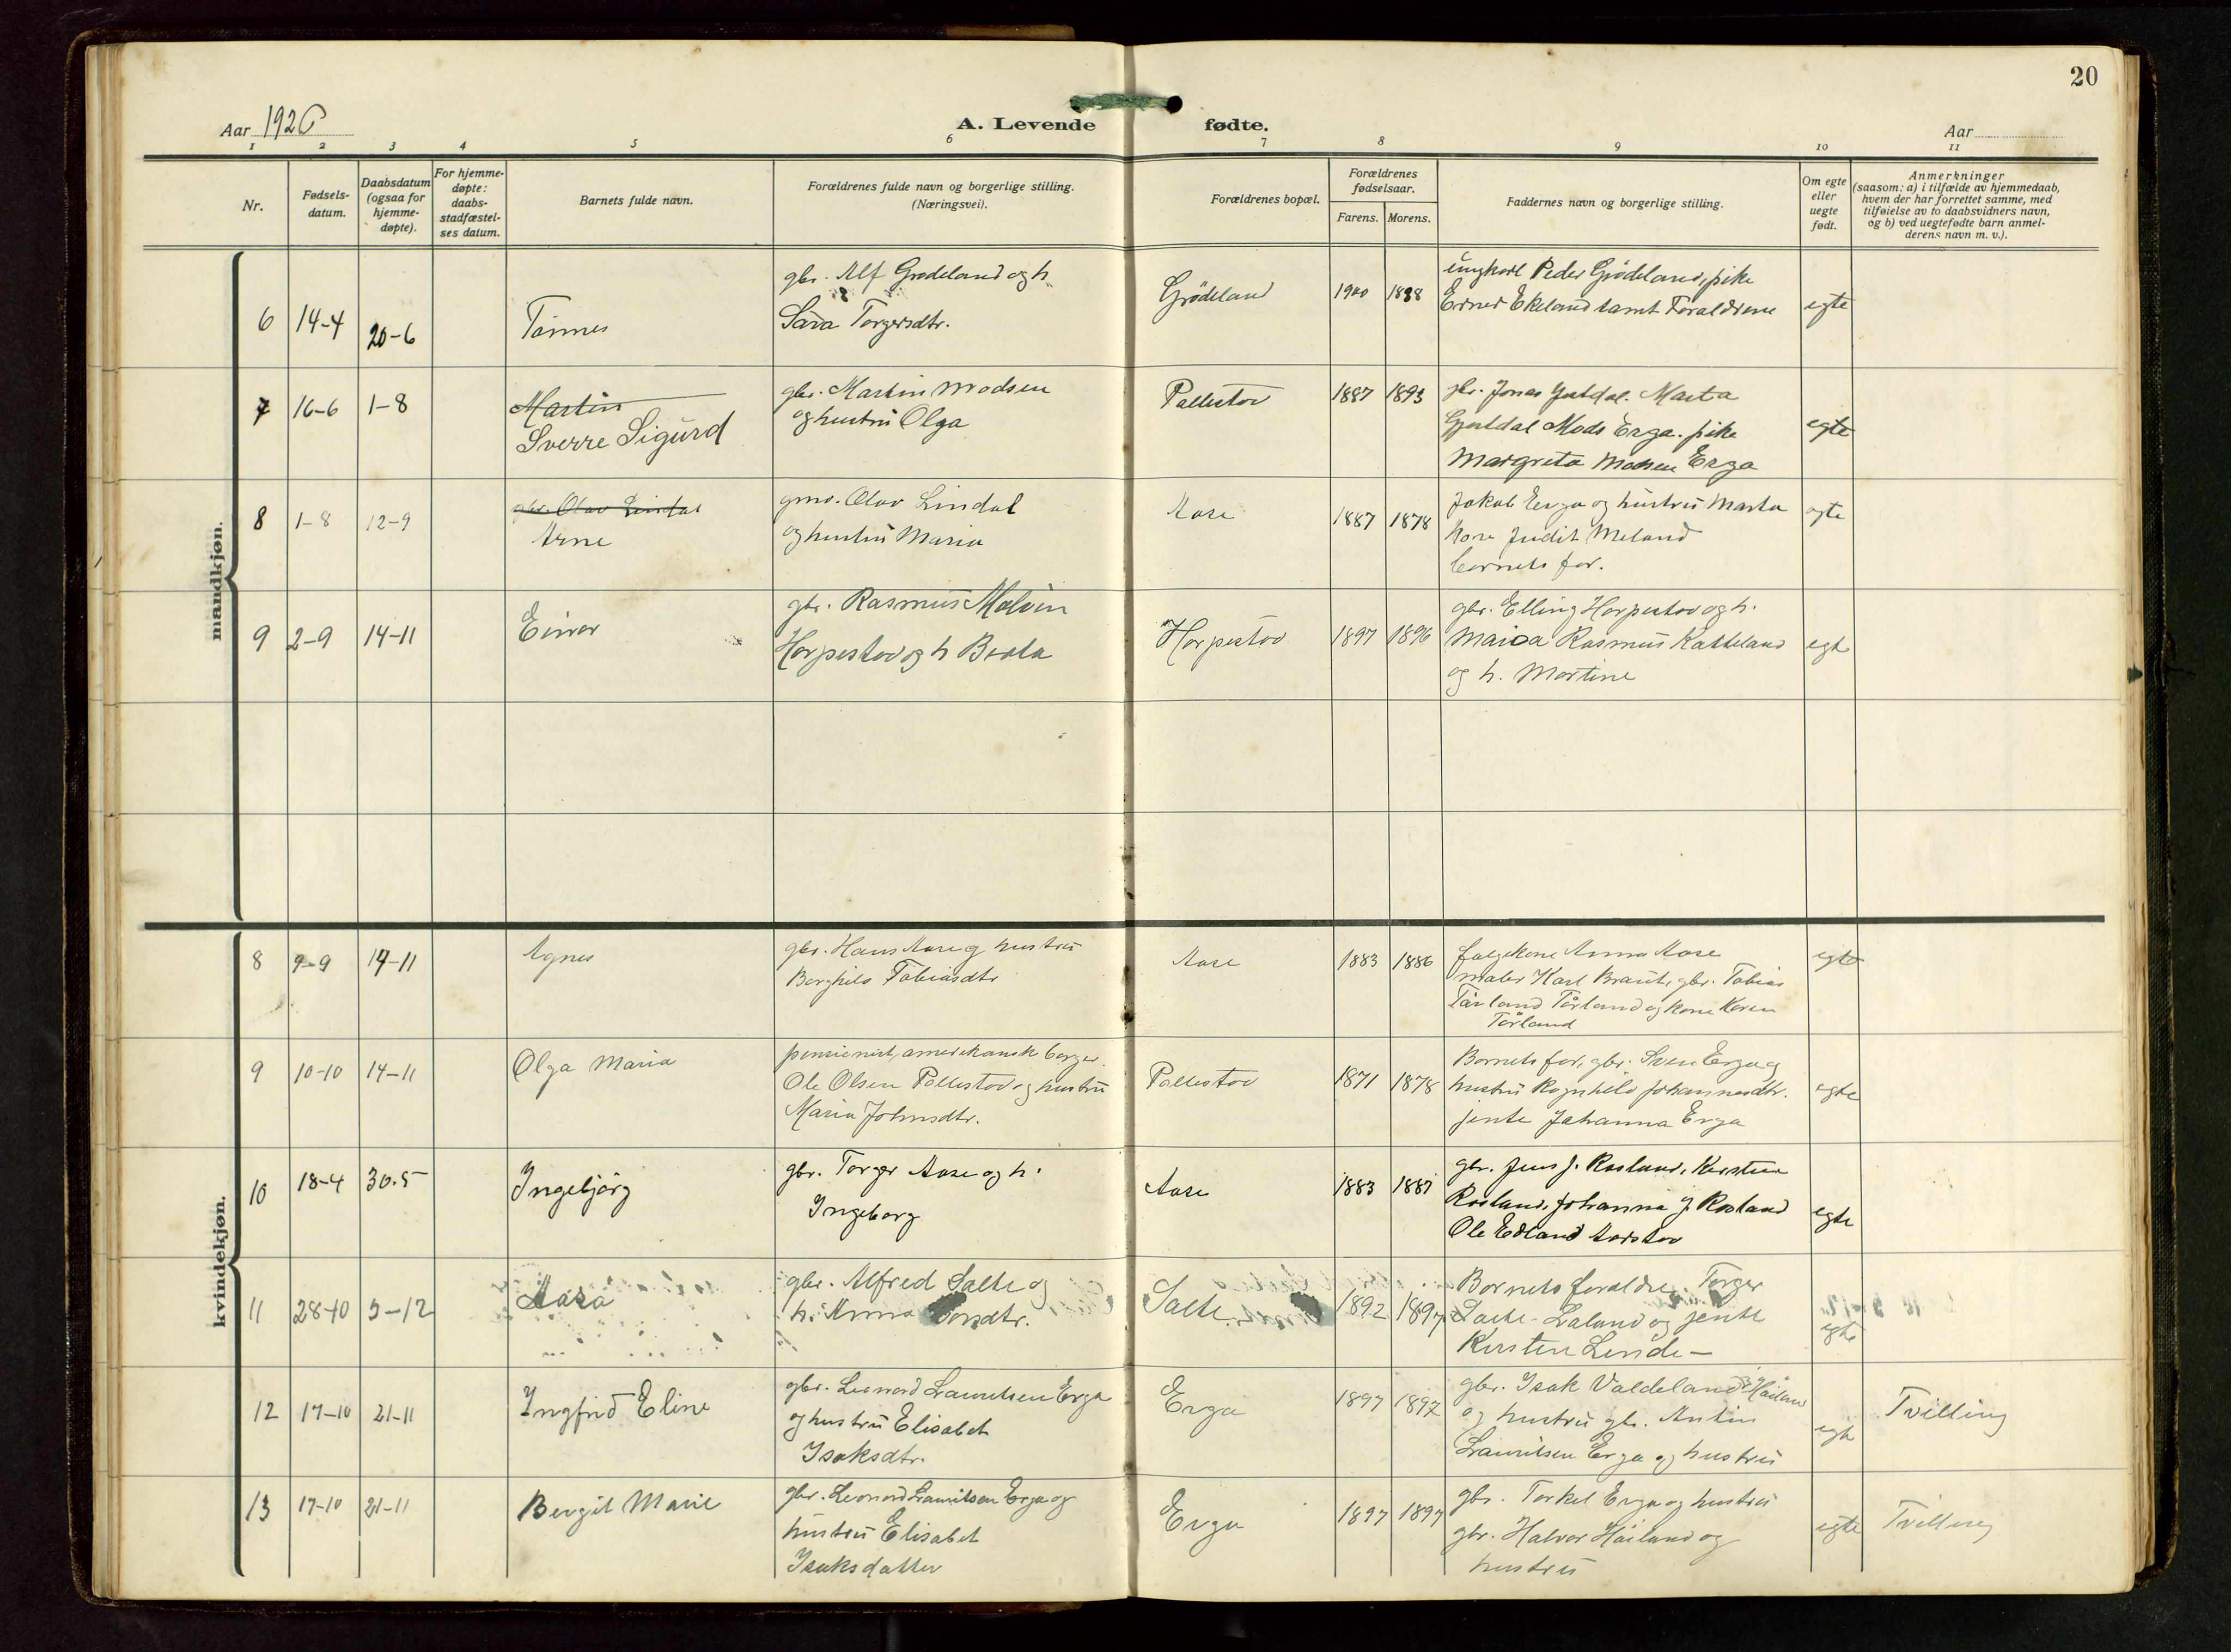 20
Aar 1926
A. Levende fødte.
Aar
1 2 3 4 5 6 7 8 9 10 11
Nr.
Fødsels-
datum.
Daabsdatum
(ogsaa for
hjemme-
døpte).
For hjemme-
døpte:
daabs-
stadfæstel-
ses datum.
Barnets fulde navn.
Forældrenes fulde navn og borgerlige stilling.
(Næringsvei).
Forældrenes bopæl.
Forældrenes
fødselsaar.
Farens. Morens.
Faddernes navn og borgerlige stilling.
Om egte
eller
uegte
født.
Anmerkninger
(saasom: a) i tilfælde av hjemmedaab,
hvem der har forrettet samme, med
tilføielse av to daabsvidners navn,
og b) ved uegtefødte barn anmel-
derens navn m. v.).
mandkjøn.
6 14-4 20-6
Tønnes
gbr. Alf Grødeland og h
Sara Torgersdtr.
Grödeland
1900 1898
ungkarl Peder Grödeland, pike
Ekeland samt Foraldrene
egte
7 16-6 1-8
Martin
Sverre Sigurd
gbr. Martin Madsen
og hustru Olga
Pollestov
1887 1893
gbr. Jonas Marta
Mads Erga. pike
Margreta Madsen Erga
egte
8 1-8 12-9
gbr. Olav Lindal
Arne
gmv. Olav Lindal
og hustru Maria
Aase
1887 1878
Jakob Erga og hustru Marta
kone Judit Meland
barnets far.
egte
9 2-9 14-11
Einar
gbr. Rasmus Malvin
Horpestov og h Berta
Horpestov
1897 1896
gbr. Elling Horpestov og h.
Maria Rasmus Katteland
og h. Martine
egte
kvindekjøn.
8 9-9 14-11
Agnes
gbr. Hans Aase og hustru
Borghild Tobiasdtr
Aase
1883 1886
kone Anna Aase
maler Karl Braut, gbr. Tobias
Tårland Tårland og kone Karen
Tårland
egte
9 10-10 14-11
Olga Maria
pensionist, amerikansk borger
Ole Olsen Pollestov og hustru
Maria Johnsdtr.
Pollestov
1871 1878
Barnets far, gbr. Sven Erga og
hustru Ragnhild Johannesdtr.
jente Johanna Erga
egte
10 18-4 30.5
Ingebjørg
gbr. Torger Aase og h.
Ingeborg
Aase
1883 1887
gbr. Jens J. Rosland, Kirstina
Rosland, Johanna J. Rosland
Ole Edland
egte
11 28-10 5-12
Aasa
gbr. Alfred Salte og
h. Anna
Salte
1892 1897
Barnets foraldre, Torger
Salte- Laland og jente
Kirsten Lende-
egte
12 17-10 21-11
Ingfrid Eline
gbr. Leonard Lauritsen Erga
og hustru Elisabet
Isaksdtr.
Erga
1897 1897
gbr. Isak Valdeland Håiland
og hustru gbr. Antin
Lauritsen Erga og hustru
egte
Tvilling
13 17-10 21-11
Bergit Marie
gbr. Leonard Lauritsen Erga og
hustru Elisabet
Isaksdatter
Erga
1897 1897
gbr. Torkel Erga og hustru
gbr. Halvor Håiland og
hustru
egte
Tvilling